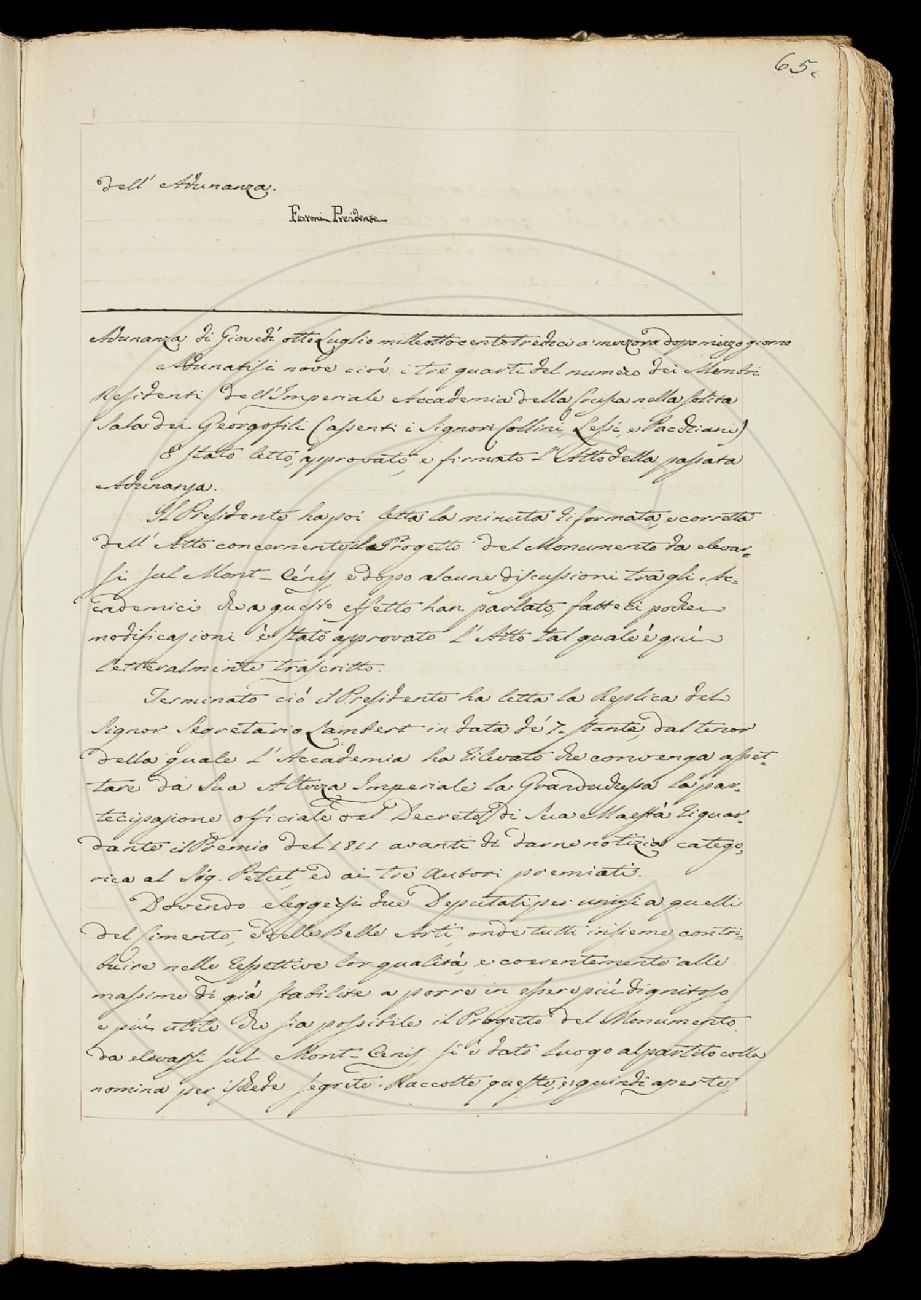 65.
dell' Adunanza.
Ferroni Presidente
Adunanza di Giovedì otto Luglio mille ottocentotredici a mezzora dopo mezzo giorno
Adunatisi nove cioè i trè quarti del numero dei Membri
Residenti dell'Imperiale Accademia della Crusca nella solita
Sala dei Georgofili (assenti i Signori Collini, Lessi, e Pacchiani)
E' stato letto, approvato, e firmato l'Atto della passata
Adunanza.
Il Presidente ha poi letta la minuta riformata, e corretta
dell' Atto concernente il Progetto del Monumento da elevar-
si sul Mont-Cénis, e dopo alcune discussioni tra gli Ac-
cademici che a questo effetto han parlato, fatteci poche
modificazioni è stato approvato l'Atto tal quale è quì
letteralmente trascritto.
Terminato ciò il Presidente ha letta la Replica del
Signor Segretario Lambert in data de' 7. stante, dal tenor
della quale l'Accademia ha rilevato che convenga aspet-
tare da Sua Altezza Imperiale la Granduchessa la par-
tecipazione officiale del Decreto di Sua Maestà riguar-
dante il Premio del 1811 avanti di darne notizia catego-
rica al Sig. Petiet, ed ai tre Autori premiati.
Dovendo eleggersi due Deputati per unirsi a quelli
del Cimento, e delle Belle Arti, onde tutti insieme contri-
buire nelle respettive lor qualità, e coerentemente alle
massime di già stabilite a porre in essere più dignitoso
e più utile che sia possibile il Progetto del Monumento
da elevarsi sul Mont-Cenis si è dato luogo al partito colla
nomina per ischede segrete. Raccolte queste, e quindi aperte,